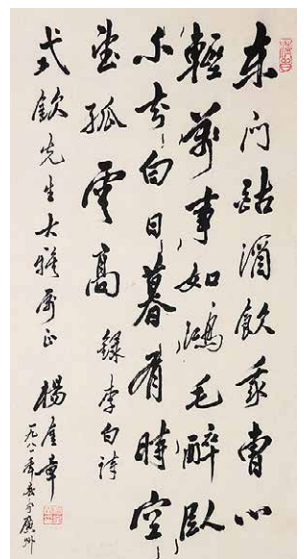 東门酤酒飲我曹心
輕萬事如鴻毛醉臥
不知白日暮有時空
望孤雲高 錄李白詩
式欽先生大雅屬正 楊奎章
一九八一年春於廣州